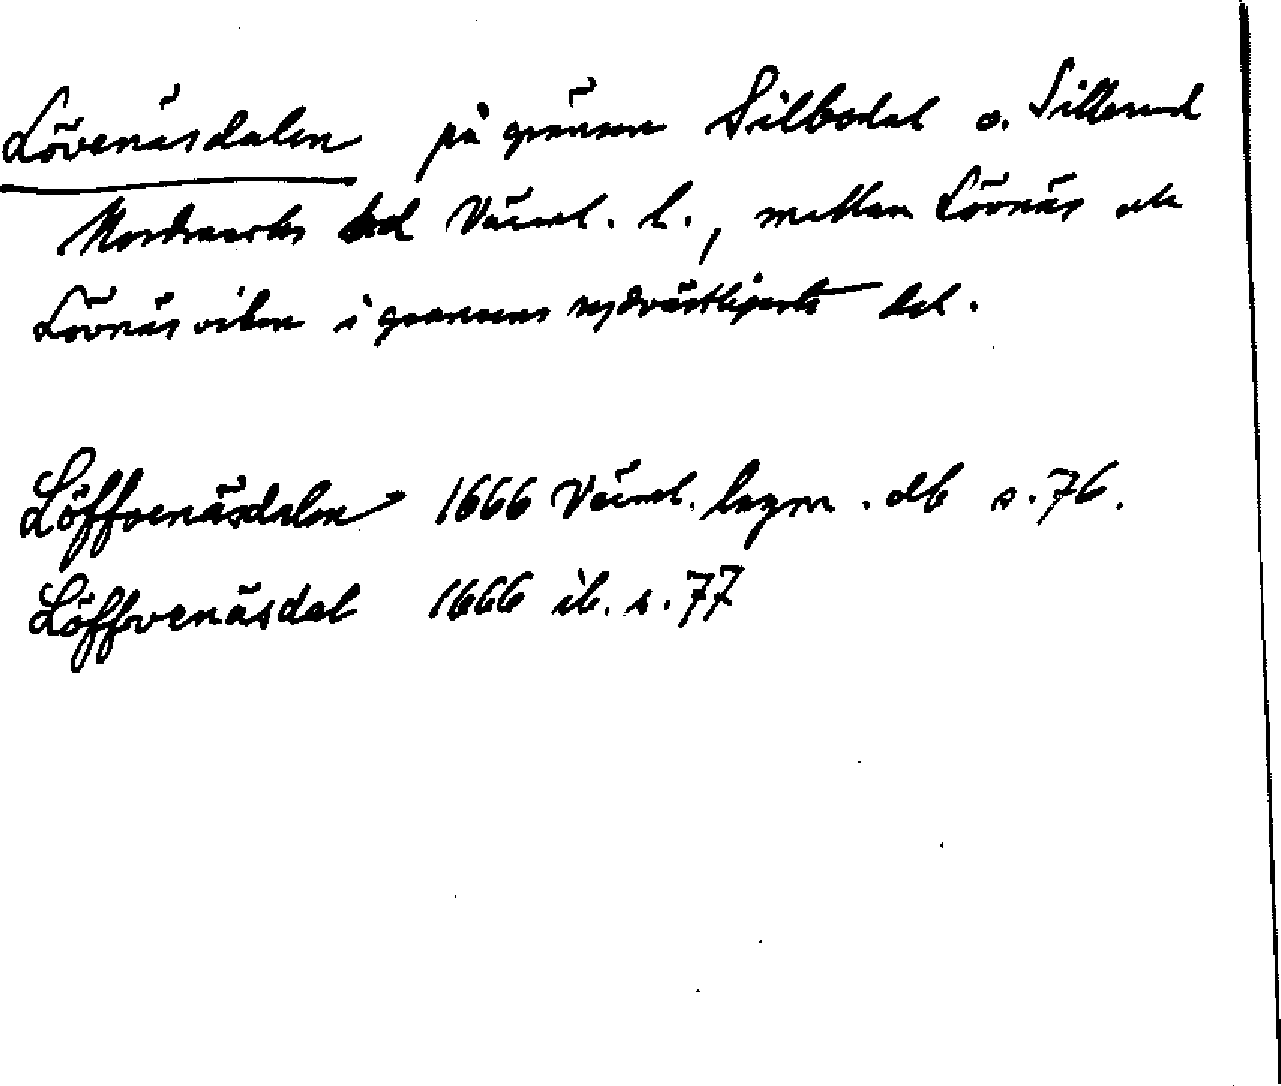 Lövenäsdalen på gränsen Silbodal o. Sillerud
Nordmarks hd Värml. l., mellan Lövnäs och
Lövnäsviken i gränsens sydvästligaste del.
Löffvenäsdalen 1666 Värml. lagm. db s. 76.
Löffvenäsdal 1666 ib. s. 77